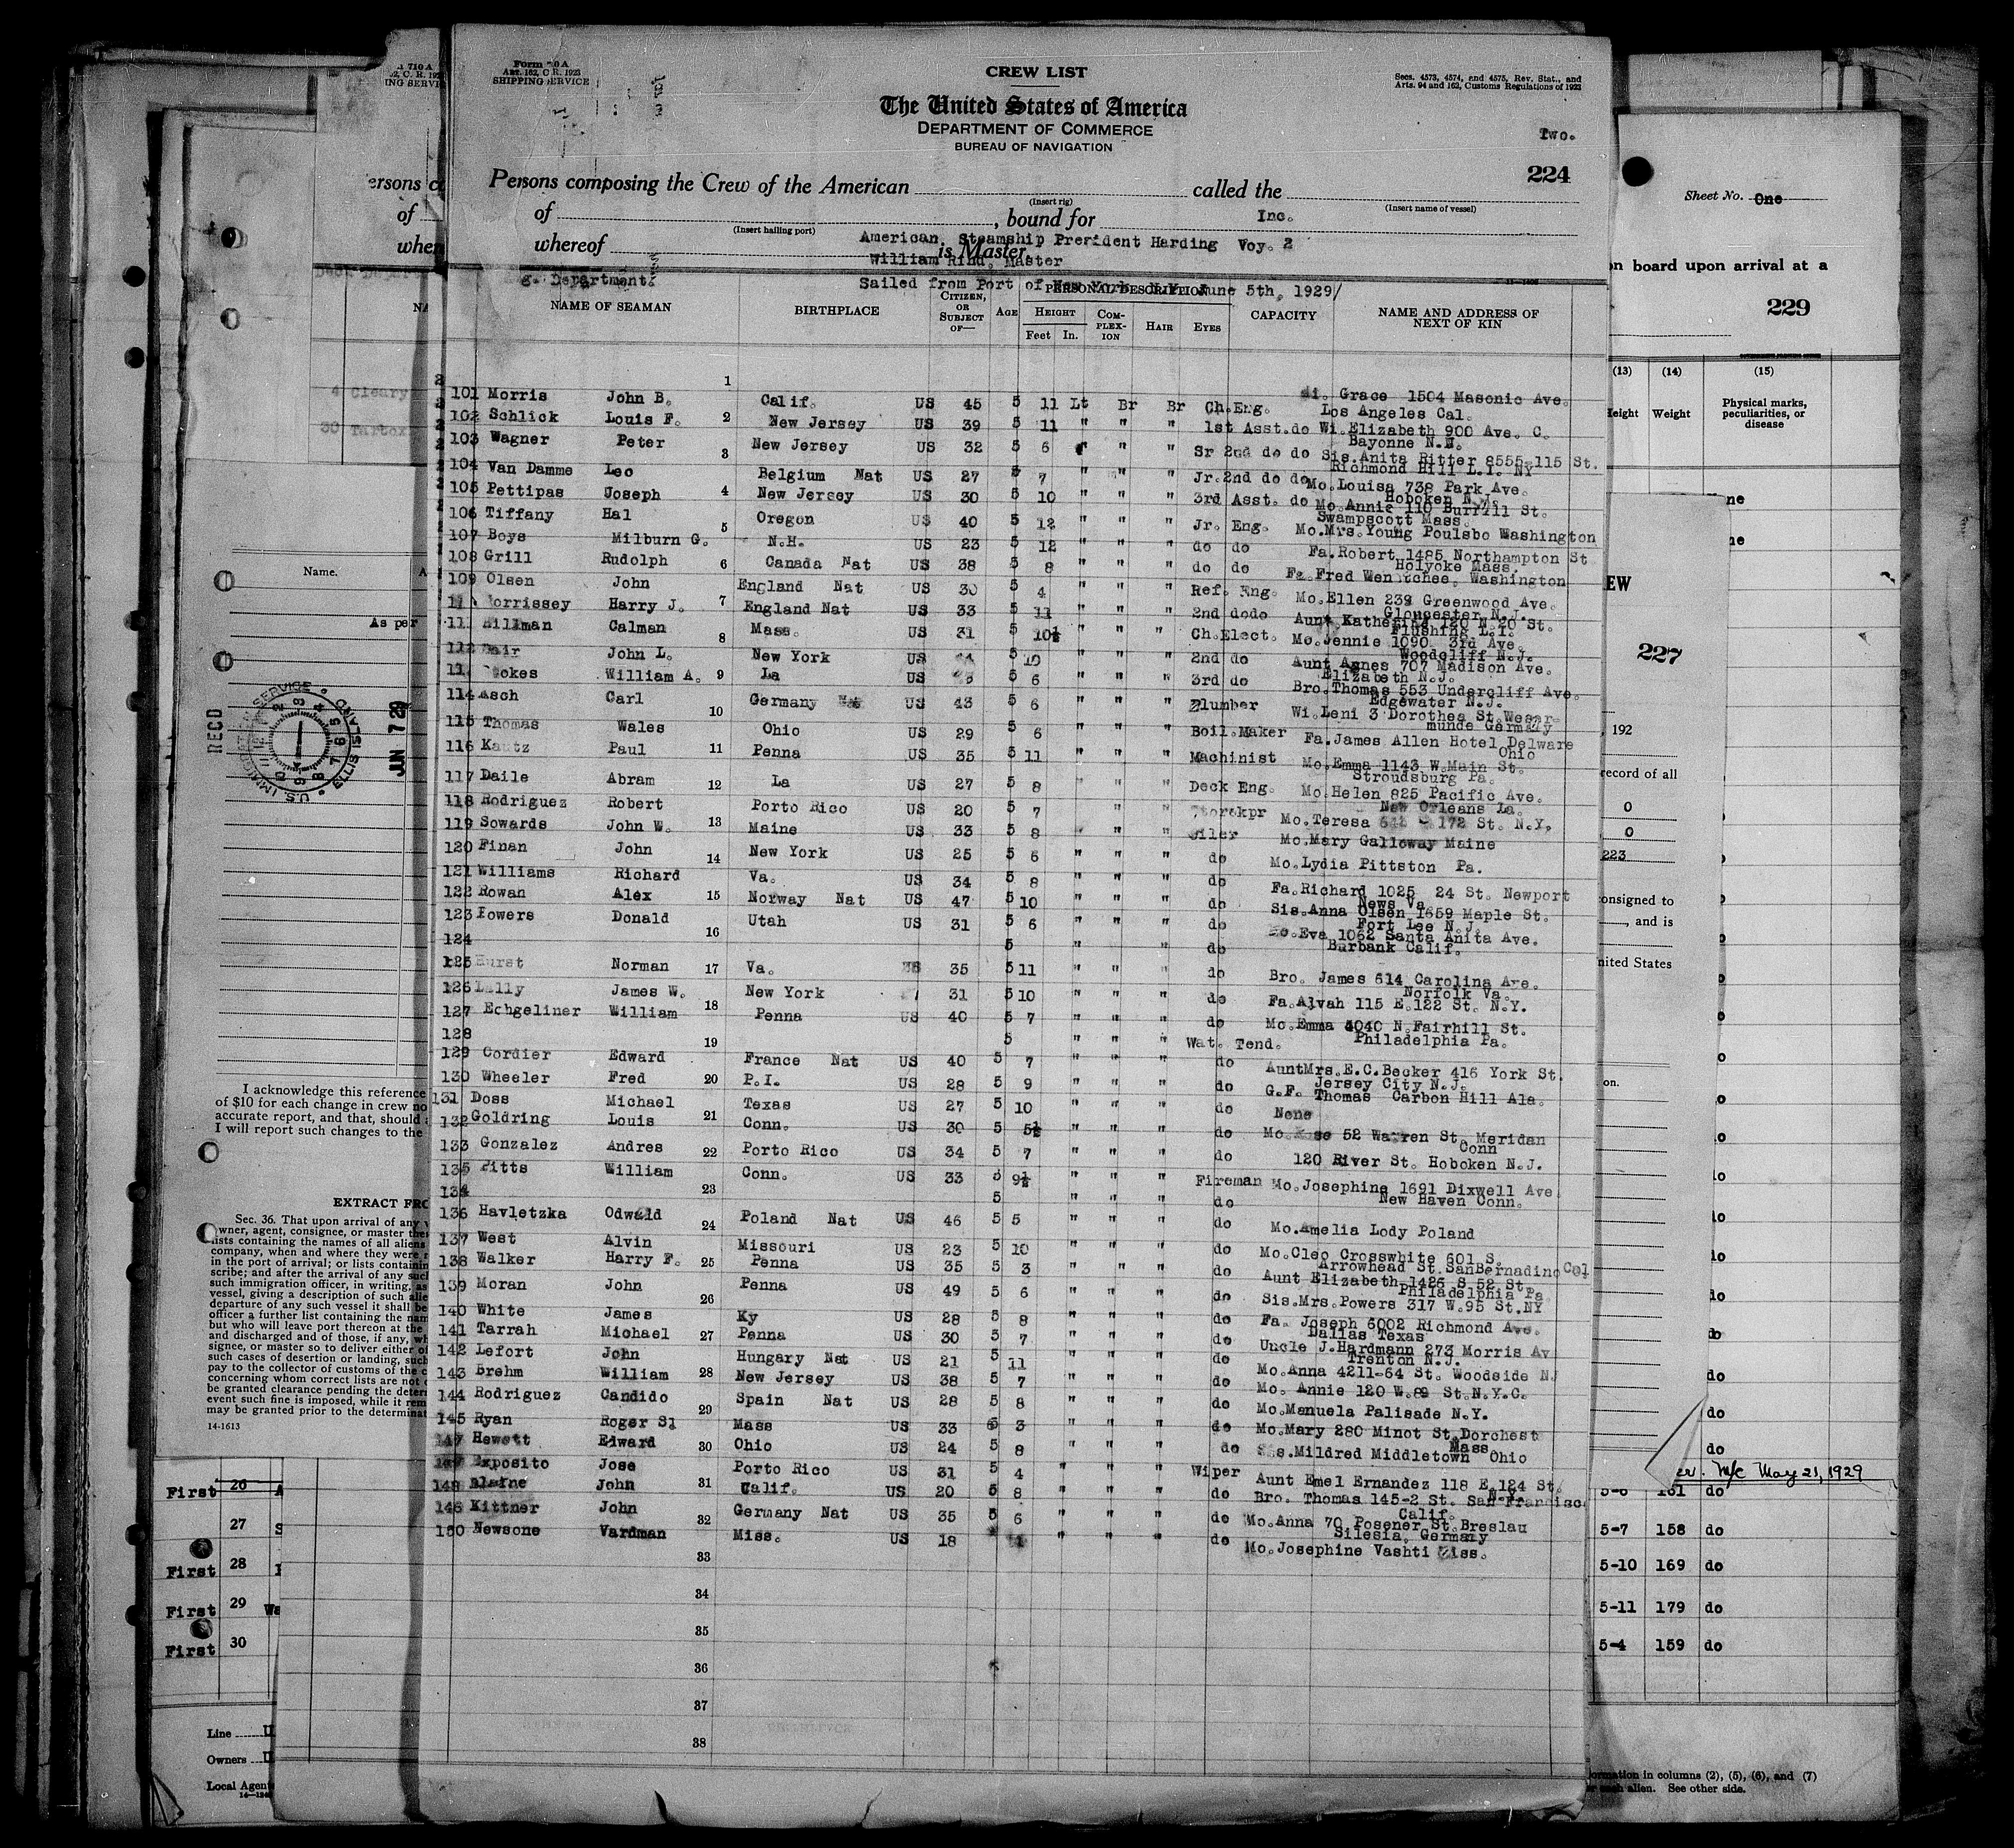 Form 710 A
Art. 162, C. R. 1923
SHIPPING SERVICE
CREW LIST
Secs. 4573, 4574, and 4575, Rev. Stat., and
Arts. 94 and 162, Customs Regulations of 1923
The United States of America
DEPARTMENT OF COMMERCE
BUREAU OF NAVIGATION
Two.
224
Persons composing the Crew of the American called the
(Insert rig) (Insert name of vessel)
of , bound for Inc.
(Insert hailing port)
American Steamship President Harding Voy. 2
whereof is Master.
William Rind, Master
g. Department.
Sailed from Port of New York N.Y. June 5th, 1929/
NAME OF SEAMAN BIRTHPLACE CITIZEN, OR SUBJECT OF— AGE PERSONAL DESCRIPTION CAPACITY NAME AND ADDRESS OF NEXT OF KIN
HEIGHT COMPLEXION HAIR EYES
Feet In.
101 Morris John B. 1 Calif. US 45 5 11 Lt Br Br Ch.Eng. Grace 1504 Masonic Ave.
Los Angeles Cal.
102 Schlick Louis F. 2 New Jersey US 39 5 11 " " " 1st Asst.do Wi.Elizabeth 900 Ave. C.
Bayonne N.
103 Wagner Peter 3 New Jersey US 32 5 6 " " Sr 2nd do do Sis.Anita Ritter 8555-115 St.
Richmond Hill L.I. NY
104 Van Damme Leo Belgium Nat US 27 5 7 " " " Jr.2nd do do Mo.Louisa 738 Park Ave.
Hoboken N.J.
105 Pettipas Joseph 4 New Jersey US 30 5 10 " " " 3rd Asst. do Mo.Annie 110 Burrill St.
Swampscott Mass.
106 Tiffany Hal 5 Oregon US 40 5 12 " " " Jr. Eng. Mo.Mrs.Young Poulsbo Washington
107 Boys Milburn G. N.H. US 23 5 12 " " " do do Fa.Robert 1485 Northampton St
Holyoke Mass.
108 Grill Rudolph 6 Canada Nat US 38 5 8 " " " do do Fa.Fred Washington
109 Olsen John England Nat US 30 5 4 " " " Ref. Eng. Mo.Ellen 239 Greenwood Ave.
Gloucester N.J.
Morrissey Harry J. 7 England Nat US 33 5 11 " " " 2nd dodo Aunt Katherine 120 N.20 St.
Flushing L.I.
111 Hillman Calman 8 Mass. US 31 5 10½ " " " Ch.Elect. Mo.Jennie 1090 3rd Ave.
Woodcliff N.J.
112 John L. New York US 5 10 " " " 2nd do Aunt Agnes 707 Madison Ave.
Elizabeth N.J.
William A. 9 La US 5 6 " " " 3rd do Bro.Thomas 553 Undercliff Ave.
Edgewater N.J.
114 Asch Carl 10 Germany US 43 5 6 " " " Plumber Wi.Leni 3 Dorothea St.Weser-
munde Germany
115 Thomas Wales Ohio US 29 5 6 " " " Boil.Maker Fa.James Allen Hotel Delware
Ohio
116 Kautz Paul 11 Penna US 35 5 11 " " " Machinist Mo.Emma 1143 W.Main St.
Stroudsburg Pa.
117 Daile Abram 12 La US 27 5 8 " " " Deck Eng. Mo.Helen 825 Pacific Ave.
New Orleans La.
118 Rodriguez Robert Porto Rico US 20 5 7 " " " Storekpr Mo.Teresa 172 St. N.Y.
119 Sowards John W. 13 Maine US 33 5 8 " " " Oiler Mo.Mary Galloway Maine
120 Finan John 14 New York US 25 5 6 " " " do Mo.Lydia Pittston Pa.
121 Williams Richard Va. US 34 5 8 " " " do Fa.Richard 1025 24 St. Newport
News Va
122 Rowan Alex 15 Norway Nat US 47 5 10 " " " do Sis.Anna Olsen 1659 Maple St.
Fort Lee N.J.
123 Powers Donald 16 Utah US 31 5 6 " " " do Eva 1062 Santa Anita Ave.
Burbank Calif.
124 5 " " do
125 Hurst Norman 17 Va. 35 5 11 " " " do Bro. James 614 Carolina Ave.
Norfolk Va.
126 Lally James W. New York 31 5 10 " " " Fa.Alvah 115 E.122 St. N.Y.
127 Echgeliner William 18 Penna US 40 5 7 " " " do Mo.Emma 4040 N.Fairhill St.
Philadelphia Pa.
128 19 5 " " " Wat. Tend.
129 Cordier Edward France Nat US 40 5 7 " " " do AuntMrs.E.C.Becker 416 York St.
Jersey City N.J.
130 Wheeler Fred 20 P.I. US 28 5 9 " " " do G.F. Thomas Carbon Hill Ala.
131 Doss Michael Texas US 27 5 10 " " " do None
132 Goldring Louis 21 Conn. US 30 5 5½ " " " do Mo. 52 Warren St. Meridan
Conn
133 Gonzalez Andres 22 Porto Rico US 34 5 7 " " " do 120 River St. Hoboken N.J.
135 Pitts William 23 Conn. US 33 5 9½ " " " Fireman Mo.Josephine 1691 Dixwell Ave
New Haven Conn.
134 5 " " " do
136 Havletzka Odwald 24 Poland Nat US 46 5 5 " " " do Mo.Amelia Lody Poland
137 West Alvin Missouri US 23 5 10 " " " do Mo.Cleo Crosswhite 601 S.
Arrowhead St.SanBernadino Cal
138 Walker Harry F. 25 Penna US 35 5 3 " " " do Aunt Elizabeth 1426 S 52 St.
Philadelphia Pa
139 Moran John 26 Penna US 49 5 6 " " " do Sis.Mrs.Powers 317 W.95 St.NY
140 White James Ky US 28 5 8 " " " do Fa. Joseph 6002 Richmond Ave.
Dallas Texas
141 Tarrah Michael 27 Penna US 30 5 7 " " " do Uncle J.Hardmann 273 Morris Av
Trenton N.J.
142 Lefort John Hungary Nat US 21 5 11 " " " do Mo.Anna 4211-64 St. Woodside NJ
143 Brehm William 28 New Jersey US 38 5 7 " " " do Mo. Annie 120 W.89 St.N.Y.C.
144 Rodriguez Candido 29 Spain Nat US 28 5 8 " " " do Mo.Manuela Palisade N.Y.
145 Ryan Roger Sl Mass US 33 5 3 " " " do Mo.Mary 280 Minot St.Dorchest
Mass
147 Hewett Edward 30 Ohio US 24 5 8 " " " do Sis.Mildred Middletown Ohio
Exposito Jose Porto Rico US 31 5 4 " " " Wiper Aunt Emel Ernandez 118 E.124 St.
N.Y.
148 Blaine John 31 Calif. US 20 5 8 " " " do Bro. Thomas 145-2 St. San Francisc
Calif.
146 Kittner John 32 Germany Nat US 35 5 6 " " " do Mo.Anna 70 Posener St.Breslau
Silesia, Germany
150 Newsone Vardman Miss. US 18 " " " do Mo.Josephine Vashti Miss.
33
34
35
36
37
38
4 Cleary
30
Name.
As per
REC'D
U.S. IMMIGRATION SERVICE
ELLIS ISLAND
JUN 7 29
I acknowledge this reference
of $10 for each change in crew no
accurate report, and that, should
I will report such changes to the
EXTRACT FRO
Sec. 36. That upon arrival of any
owner, agent, consignee, or master the
lists containing the names of all aliens
company, when and where they were
in the port of arrival; or lists containin
scribe; and after the arrival of any such
such immigration officer, in writing, as
vessel, giving a description of such alie
departure of any such vessel it shall be
officer a further list containing the nam
but who will leave port thereon at the
and discharged and of those, if any, wh
signee, or master so to deliver either of
such cases of desertion or landing, such
pay to the collector of customs of the c
concerning whom correct lists are not
be granted clearance pending the deter
event such fine is imposed, while it rem
may be granted prior to the determinat
14-1613
First 26
27
First 28
First 29 Wa
First 30
Line
Owners
Local Agent
Sheet No. One
on board upon arrival at a
229
(13) (14) (15)
Height Weight Physical marks, peculiarities, or disease
EW
227
, 192
record of all
0
0
223
consigned to
, and is
nited States
on.
May 21, 1929
161 do
5-7 158 do
5-10 169 do
5-11 179 do
5-4 159 do
ormation in columns (2), (5), (6), and (7)
each alien. See other side.